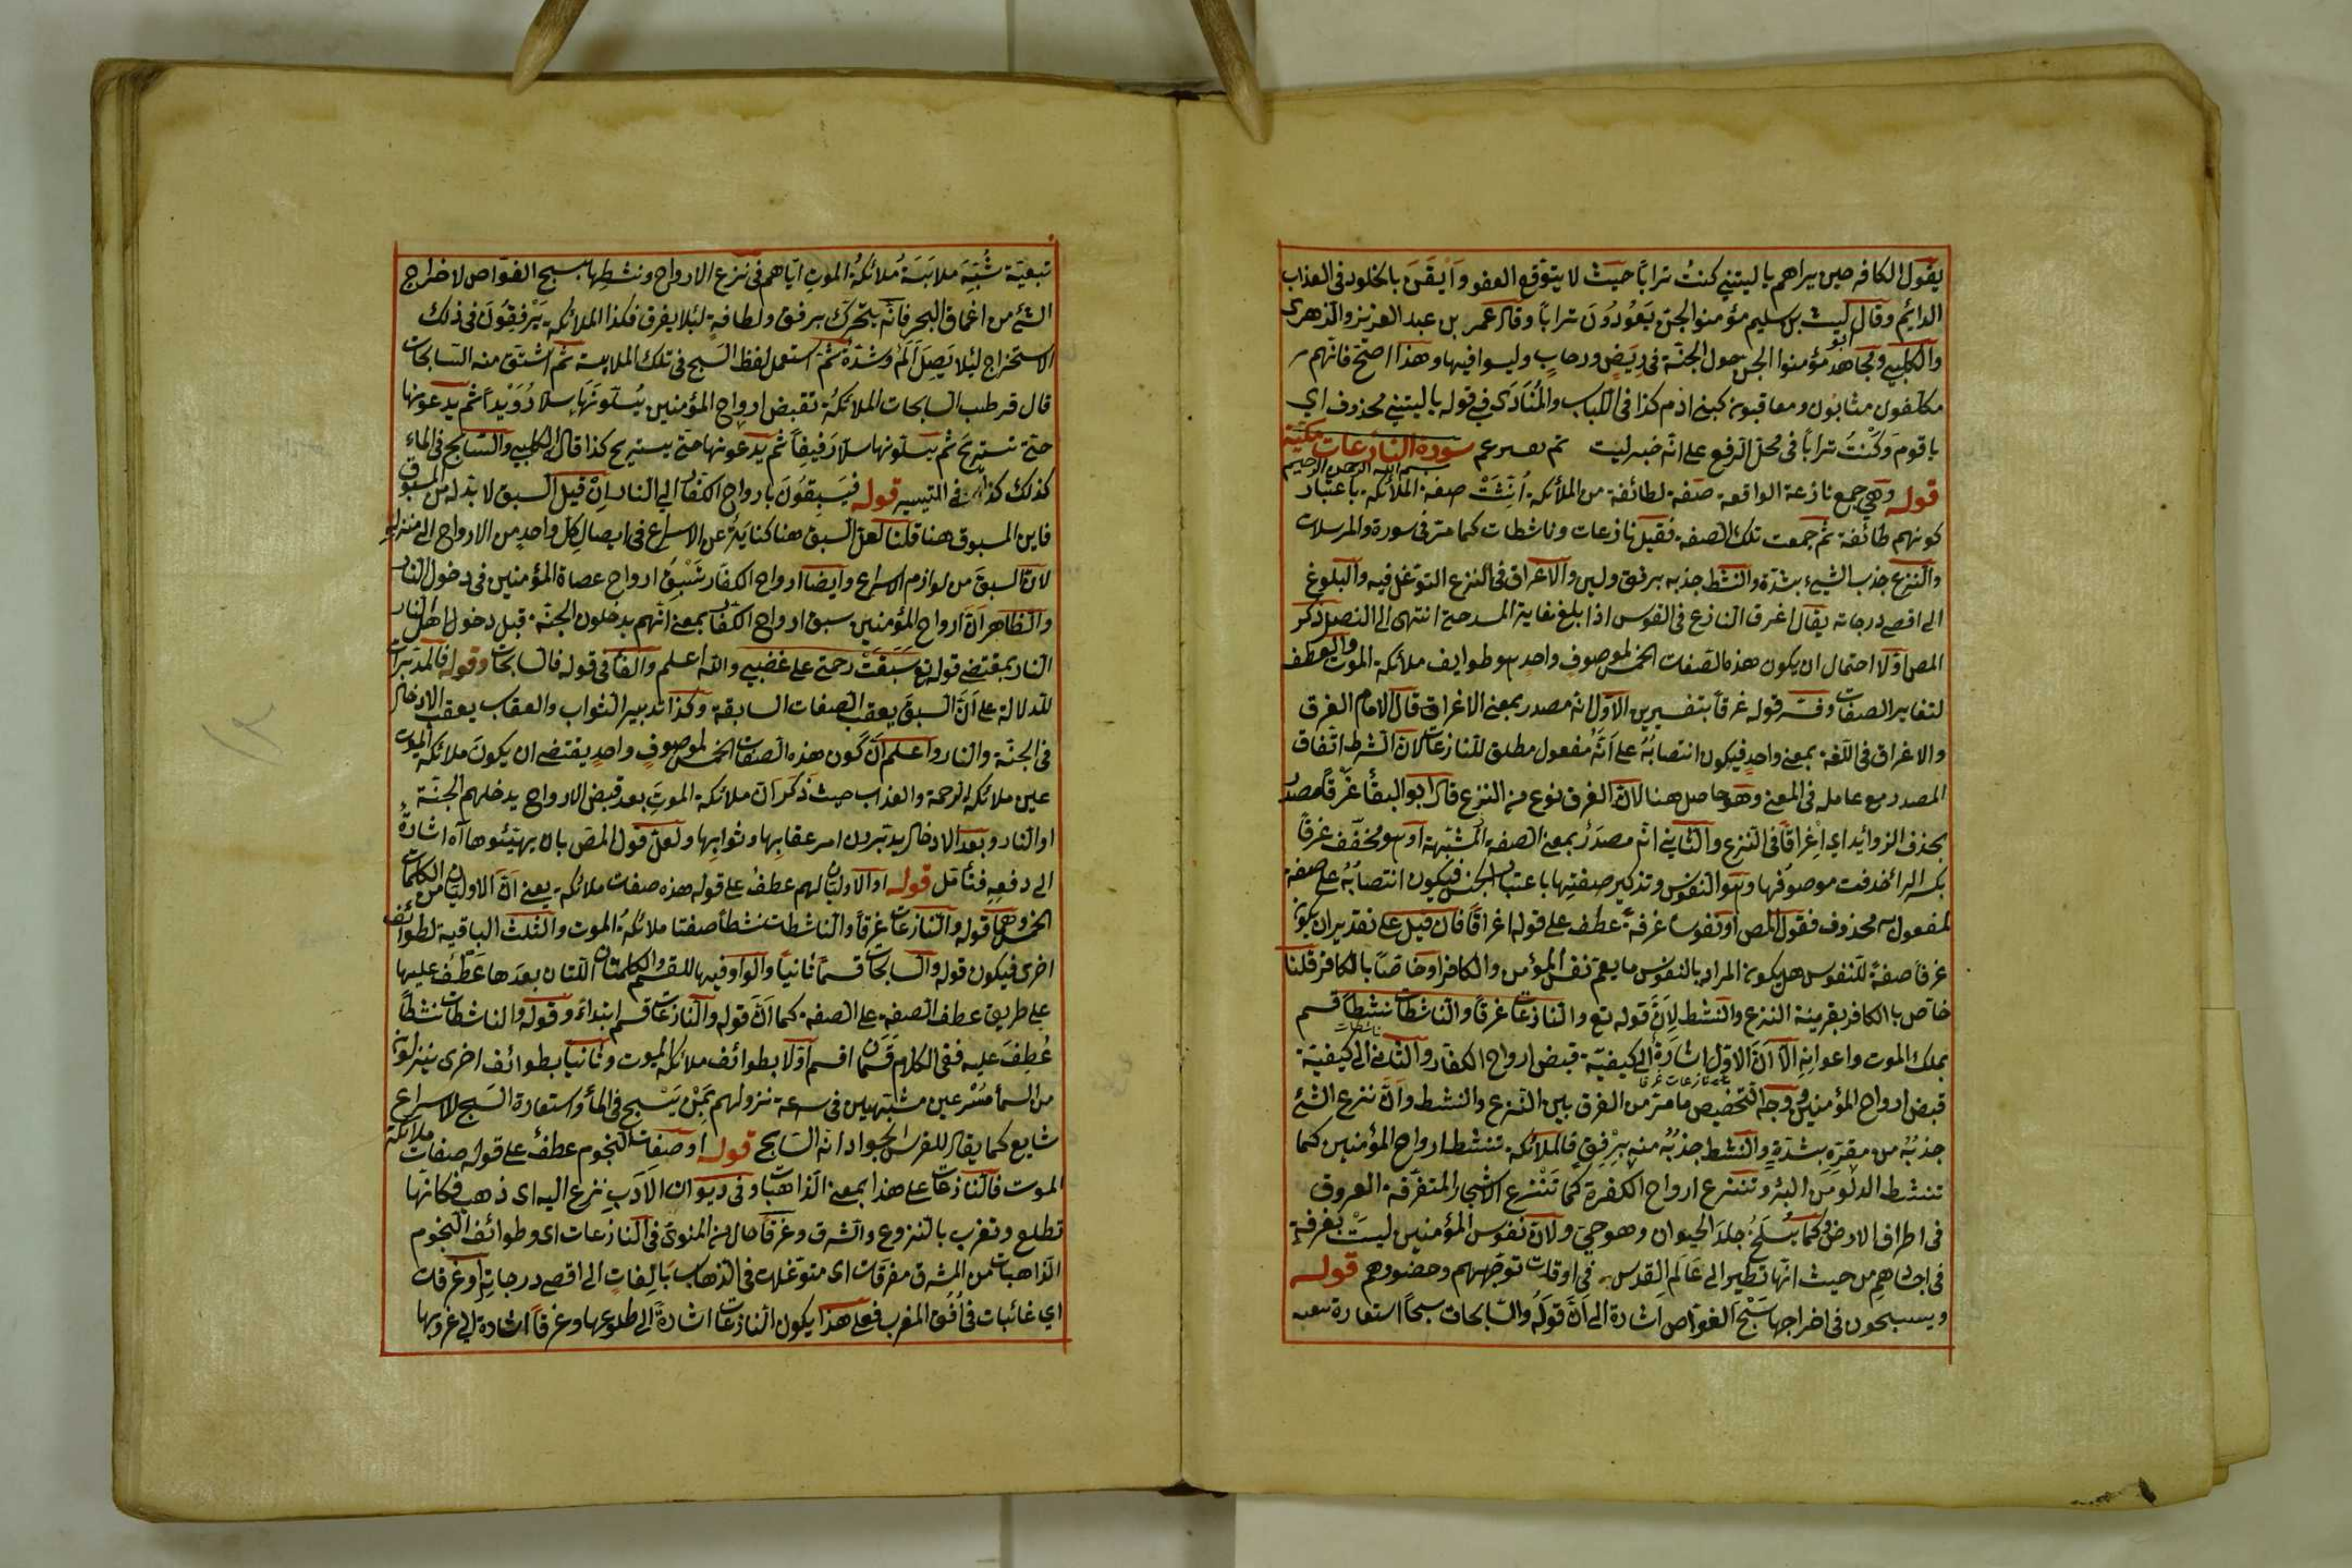 يقول الكافر حين يراهم يا ليتني كنتُ تراباً حيث لا يتوقع العفو وَاَيْقَنَ بالخلود في العذاب
الدائم وقال ليث بن سليم مؤمنوا الجن يَعُودُونَ تراباً وقال عمر بن عبد العزيز والزهرى
والكلبي ومجاهد مؤمنوا الجن حول الجنّة في رَبَضٍ ورحابٍ وليسوا فيها وهذا اصحّ فانّهم
مكلّفون مثابون ومعاقبون كبنى اٰدم كذا في اللباب والمُنَادَى في قوله يا ليتني محذوف اي
يا قوم وَكُنْتُ تراباً في محلّ الرفع على انّه خبر ليت تم سورة النازعات مكيّة
بسم الله الرحمن الرحيم
قوله وهي جمع نازعة الواقعة صفة لطائفة من الملائكة اُنِّثَتْ صفة الملائكة باعتبار
كونهم طائفة ثم جمعت تلك الصفة فقيل نازعات وناشطات كما مرّ في سورة والمرسلات
والنزع جذب الشيء بشدّة والنشط جذبه برفق ولين والاغراق في النزع التوغل فيه والبلوغ
الى اقصى درجاته يقال اغرق النازع في القوس اذا بلغ غاية المد حتى انتهى الى النصل ذكر
المص اوّلا احتمال ان يكون هذه الصفات الخمس لموصوفٍ واحدٍ هو طوايف ملائكة الموت والعطف
لتغاير الصفات وفسّر قوله غرقاً بتفسيرين الاوّل انه مصدر بمعنى الاغراق قال الامام الغرق
والاغراق في اللغة بمعنى واحدٍ فيكون انتصابُهُ على اَنَّهُ مفعول مطلق للنازعات لانّ الشرط اتّفاق
المصدر مع عامله في المعنى وهو حاصل هنا لانّ الغرق نوع من النزع قال ابو البقأ غَرْقاً مصدر
بحذف الزوائد اي اِغراقاً في النزع والثاني انّه مصدرٌ بمعنى الصفة المُشبّهة او هو مخفّف غرقاً
بكسر الرا حذفت موصوفها وهو النفوس وتذكير صفتها باعتبار الجنس فيكون انتصابُهُ على صفة
لمفعول به محذوف فقول المص او نفوسا غرقة عطف على قوله اغراقاً فان قيل على تقدير ان يكون
غرقاً صفةً للنفوس هل يكون المراد بالنفوس ما يعمّ نفس المؤمن والكافر او خاصّاً بالكافر قلنا
خاصّ بالكافر بقرينة النزع والنشط لِاَنَّ قوله تع والنازعات غرقاً والناشطات نشطاً قسم
بملك الموت واعوانِهِ الّا اَنّ الاوّل اشارةٌ الى كيفيّة قبض ارواح الكفّار والثاني الى كيفيّة
قبض ارواح المؤمنين ووجه التخصيص ما مرّ من الفرق بين النزع والنشط واَنّ نزع الشئ
جذبُهُ من مقرّه بشدّةٍ والنشط جذبُهُ منه بِرْفقٍ فالملائكة تنشط ارواح المؤمنين كما
تنشط الدلو مِنَ البئر وتنزع ارواح الكفرة كما تَنْزع الاشجار المتفرّقة العروق
في اطراف الارض وكما يُسْلَخُ جلدُ الحيوان وهو حيّ ولانّ نفوس المؤمنين ليستْ بغرقةٍ
في اجسادهم من حيث انّها تطير الى عَالَمِ القدس في اوقات توجّههم وحضورهم قوله
ويسبحون في اخراجها سَبْحَ الغوّاص اشارة الى اَنَّ قوله والسابحات سبحاً استعارة تبعية
تبعيّة شُبِّهَ ملابَسَةُ ملائكةُ الموتِ ايّاهم في نزع الارواح ونشطها بسبح الغوّاص لاخراج
الشئ من اعماق البحر فانّه يتحرّك برفق ولطافةٍ لئلا يغرق فكذا الملائكة يَرْفقُونَ في ذلك
الاستخراج لئلا يَصِلَ اَلَمٌ وشدّةٌ ثم استعمل لفظ السبح في تلك الملابسة ثم اشتق منه السابحات
قال قرطب السابحات الملائكةُ تقبض ارواح المؤمنين يُسلّونَهَا سلًّا رُوَيْداً ثم يدعونها
حتّى تستريحَ ثم يسلّونها سلًّا رَفيقاً ثم يدعونها حتّى يستريح كذا قال الكلبي والسابح في الماء
كذلك كذا في التيسير قوله فيَسبِقُونَ بارواح الكفّار الى النار اِنْ قيل السبق لا بدّ له من المسبوق
فاين المسبوق هنا قلنا لعلّ السبق هنا كنايَةٌ عن الاسراع في ايصال كل واحدٍ من الارواح الى منزله
لانّ السبق من لوازم الاسراع وايضا ارواح الكفّار تَسْبِقُ ارواح عصاة المؤمنين في دخول النار
والظاهر انّ ارواح المؤمنين سبق ارواح الكفّار بمعنى انّهم يدخلون الجنّة قبل دخول اهل النار
النار بمقتضى قوله تع سَبَقَتْ رحمتى على غضبي والله اعلم والفا في قوله فالسابحات وقوله فالمدبّرات
للدلالة على اَنّ السبق يعقب الصفات السابقة وكذا تدبير الثواب والعقاب يعقب الادخال
في الجنّة والنار واعلم اَنّ كون هذه الصفات الخمس لموصوفٍ واحدٍ يقتضي ان يكون ملائكة الموت
عين ملائكة الرحمة والعذاب حيث ذَكَرَ انّ ملائكة الموتِ بعد قبض الارواح يدخلهم الجنّة
او النار وبعد الادخال يدبّرون امر عقابها وثوابها ولعلّ قول المص بان يهيّئوها آه اشارةٌ
الى دفعه فتأمّل قوله او الاوليان لهم عطفٌ على قوله هذه صفات ملائكة يعني اَنّ الاوليان من الكلمات
الخمس وهما قوله والنازعات غرقاً والناشطات نشطاً صفتا ملائكةُ الموت والثلث الباقية لطوائف
اخرى فيكون قوله والسابحات قسماً ثانياً والواو فيها للقسم والكلمتان اللّتان بعدها عَطْفٌ عليها
على طريق عطف الصفة على الصفة كما اَنّ قوله والنازعات قسم ابتداءً وقوله والناشطات نشطاً
عُطِفَ عليه ففي الكلام قَسَمَان اقسم اوّلا بطوائف ملائكة الموت وثانياً بطوائف اخرى ينزلون
من السمأ مُسْرعين مشبّهين في سرعة نزولهم بَمَنْ يَسْبح في المأ واستعارة السبح للاسراع
شايع كما يقال للفرس الجواد انّه السابح قوله او صفات النجوم عطفٌ على قوله صفات ملائكة
الموت فالنازعات على هذا بمعنى الذاهبات وفي ديوان الادب نزع اليه اى ذهب فكانّها
تطلع وتغرب بالنزوع والشرق وغرقاً حال من المنوى في النازعات اى وطوائف النجوم
الذاهبات من المشرق مغرقات اى متوغلات في الذهاب بَالِغاتٍ الى اقصى درجاتِهِ او غرقات
اي غائبات في اُفُق المغرب فعلى هذا يكون النازعات اشارةً الى طلوعها وغرقاً اشارة الى غروبها